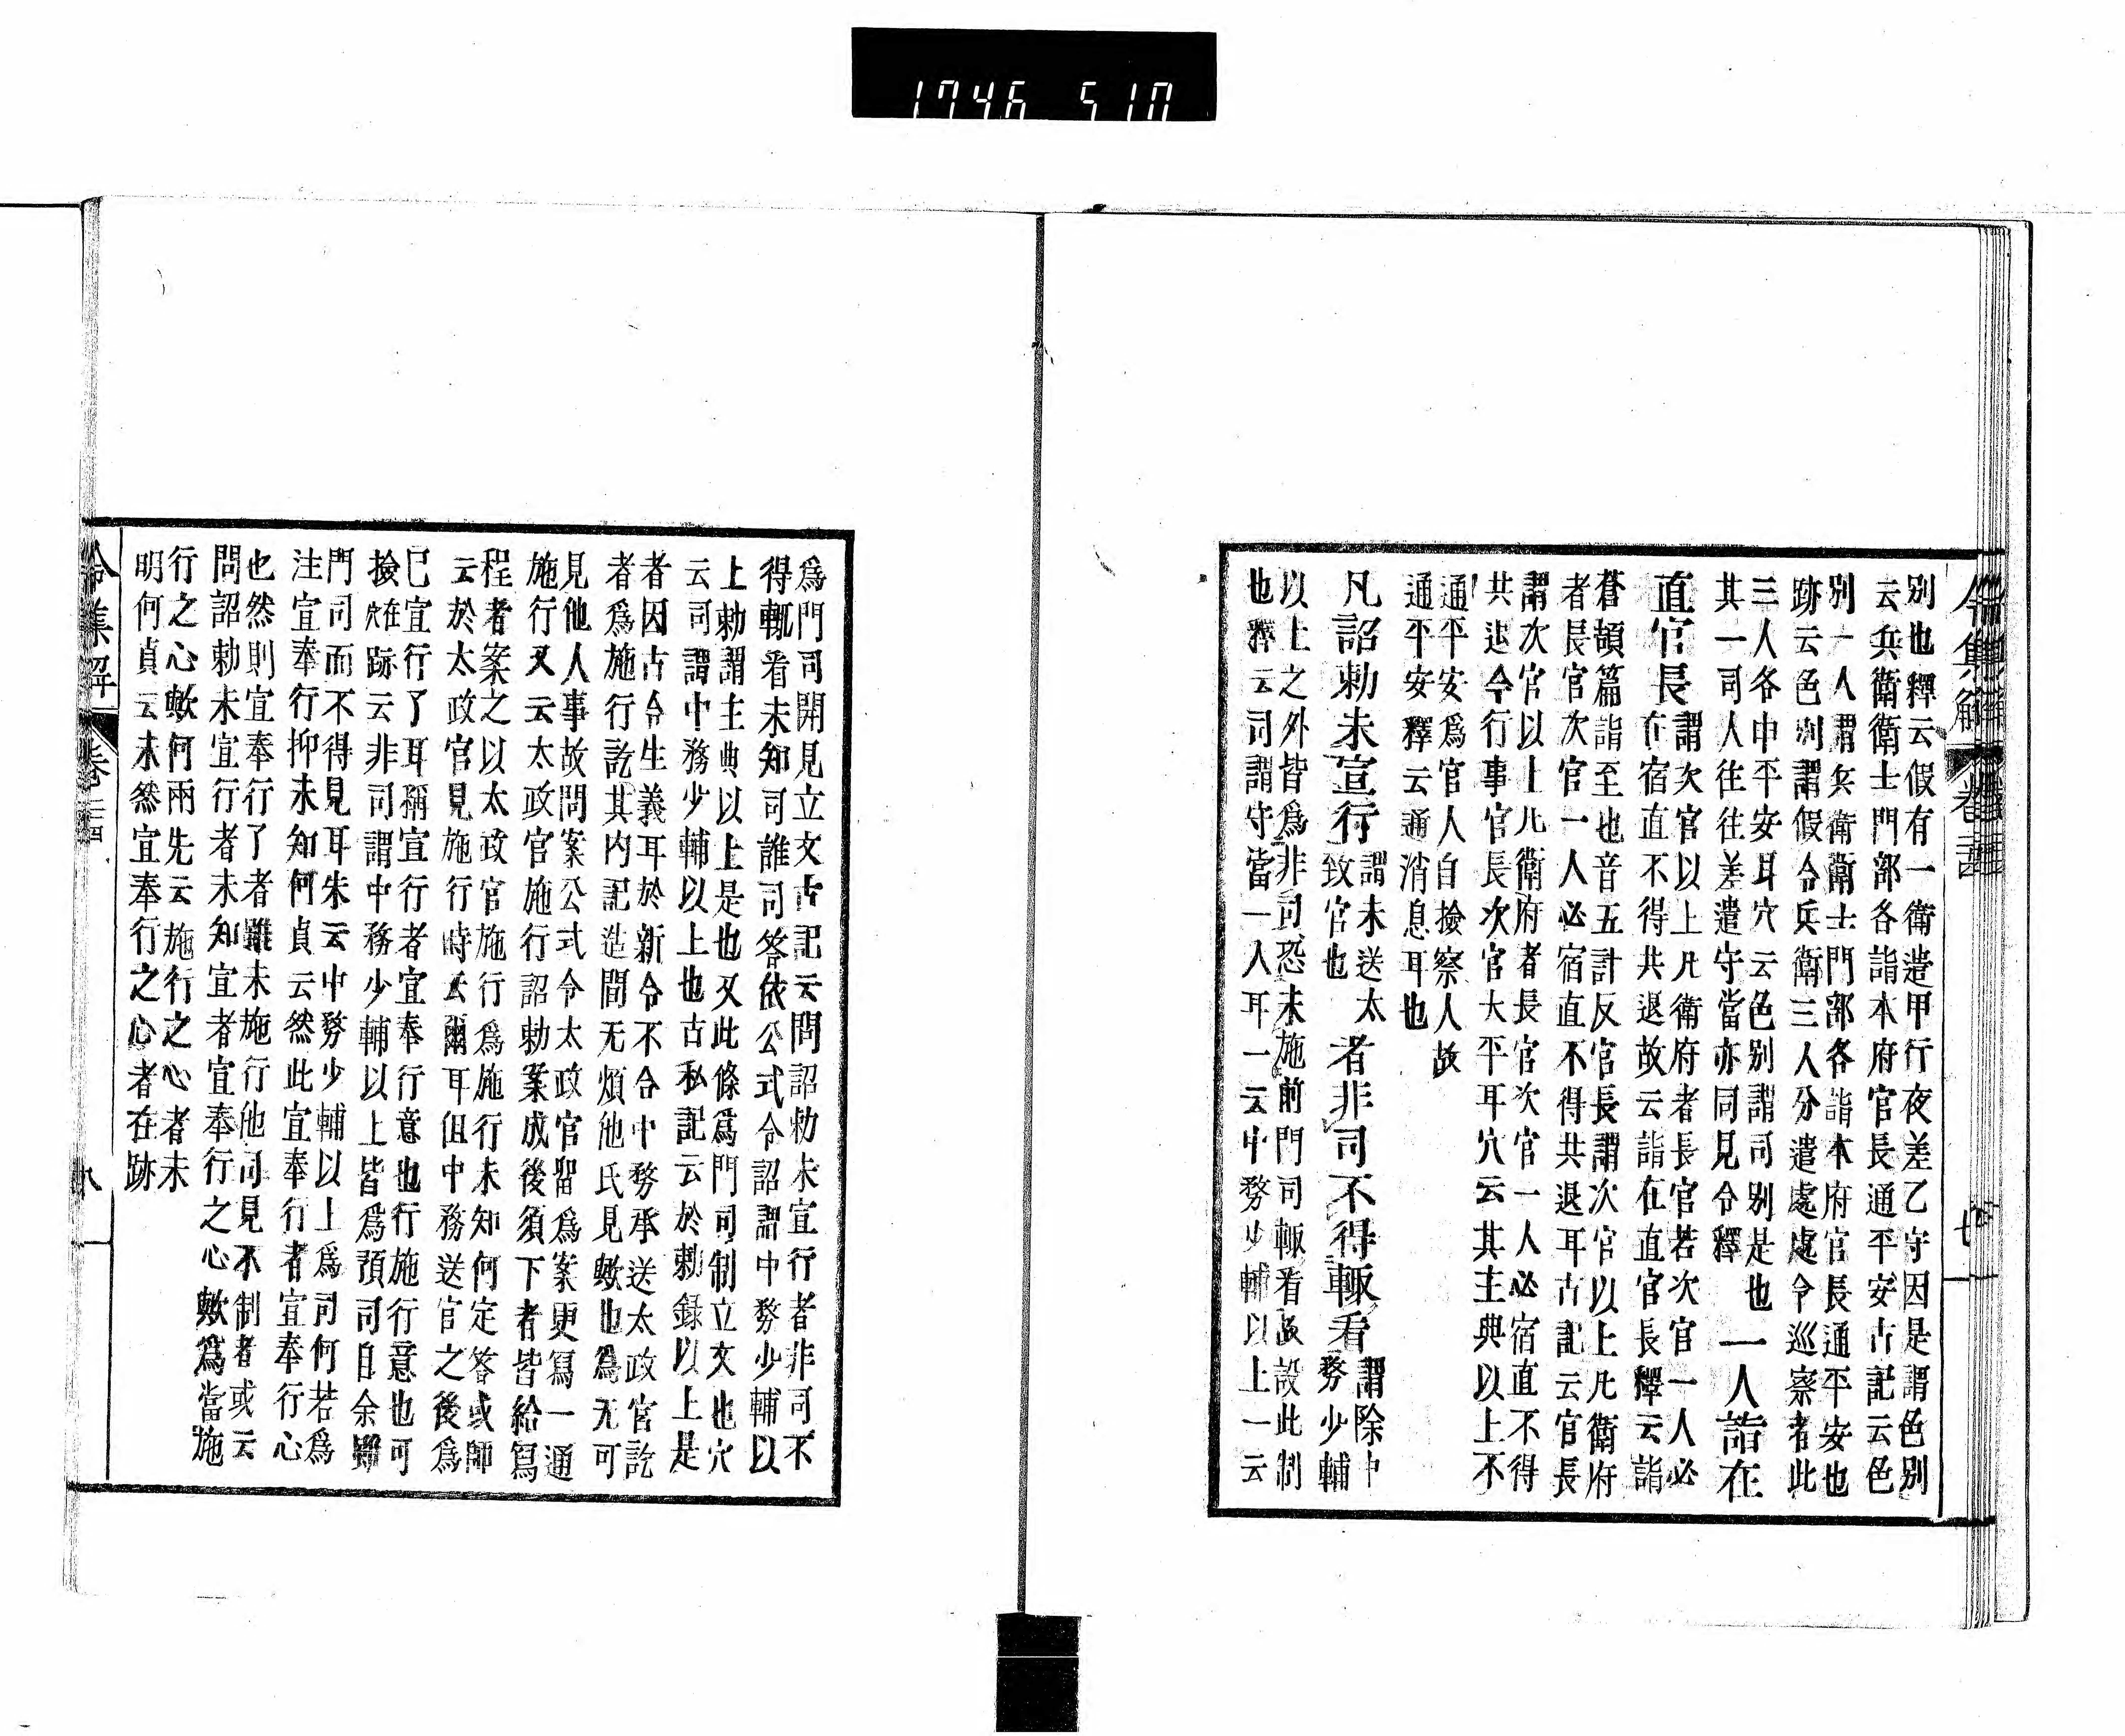 1746 510
令集解 卷二十四 七
別也釋云假有一衛造甲行夜差乙守因是謂色別
云兵衛衛士門部各詣本府官長通平安古記云色
別一人謂兵衛衛士門部各詣本府官長通平安也
跡云色別謂假令兵衛三人分遣處處令巡察者此
三人各申平安耳穴云色別謂司別是也
一人詣在
其一司人往往差遣守當亦同見令釋
直官長
謂次官以上凡衛府者長官若次官一人必
在宿直不得共退故云詣在直官長釋云詣
蒼頡篇詣至也音五計反官長謂次官以上凡衛府
者長官次官一人必宿直不得共退耳古記云官長
謂次官以上凡衛府者長官次官一人必宿直不得
共退令行事官長次官大平耳穴云其主典以上不
通平安爲官人自撿察人故
通平安釋云通消息耳也
凡詔勅未宣行
謂未送太
致官也
者非司不得輙看
謂除中
務少輔
以上之外皆爲非司恐未施前門司輙看故設此制
也釋云司謂守當一人耳一云中務少輔以上一云
爲門司開見立文古記云問詔勅未宣行者非司不
得輙看未知司誰司答依公式令詔謂中務少輔以
上勅謂主典以上是也又此條爲門司制立文也穴
云司謂中務少輔以上也古私記云於勅錄以上是
者因古令生義耳於新令不合中務承送太政官訖
者爲施行訖其内記造間无煩他氏見歟也爲无可
見他人事故問案公式令太政官留爲案更寫一通
施行又云太政官施行詔勅案成後須下者皆給寫
程者案之以太政官施行爲施行未知何定答或師
云於太政官見施行時云爾耳但中務送官之後爲
已宣行了耳稱宣行者宜奉行意也行施行意也可
撿在跡云非司謂中務少輔以上皆爲預司自余雖
門司而不得見耳朱云中務少輔以上爲司何若爲
注宣奉行抑未知何貞云然此宜奉行者宜奉行心
也然則宣奉行了者雖未施行他司見不制者或云
問詔勅未宣行者未知宣者宜奉行之心歟爲當施
行之心歟何兩先云施行之心者未
明何貞云未然宜奉行之心者在跡
令集解 卷二十四 八